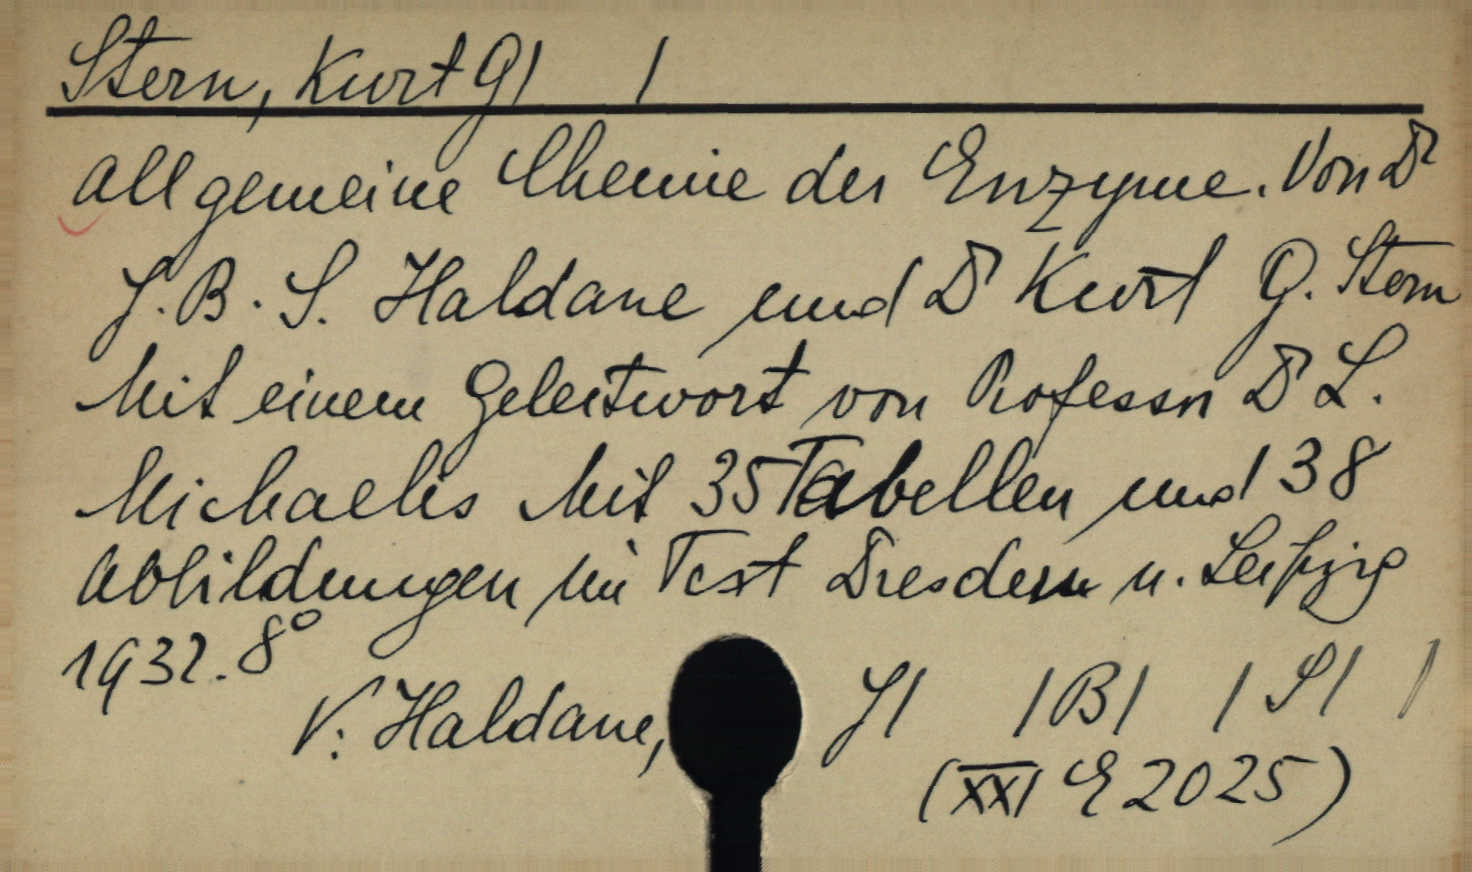 Stern, Kurt G| |
Allgemeine Chemie der Enzyme. Von Dr
J. B. S. Haldane und Dr Kurt G. Stern
Mit einem Geleitwort von Professor Dr L.
Michaelis Mit 35 Tabellen und 38
Abbildungen im Text Dresden u. Leipzig
1932. 8°
V. Haldane, J| |B| |S| |
(XXI E 2025)